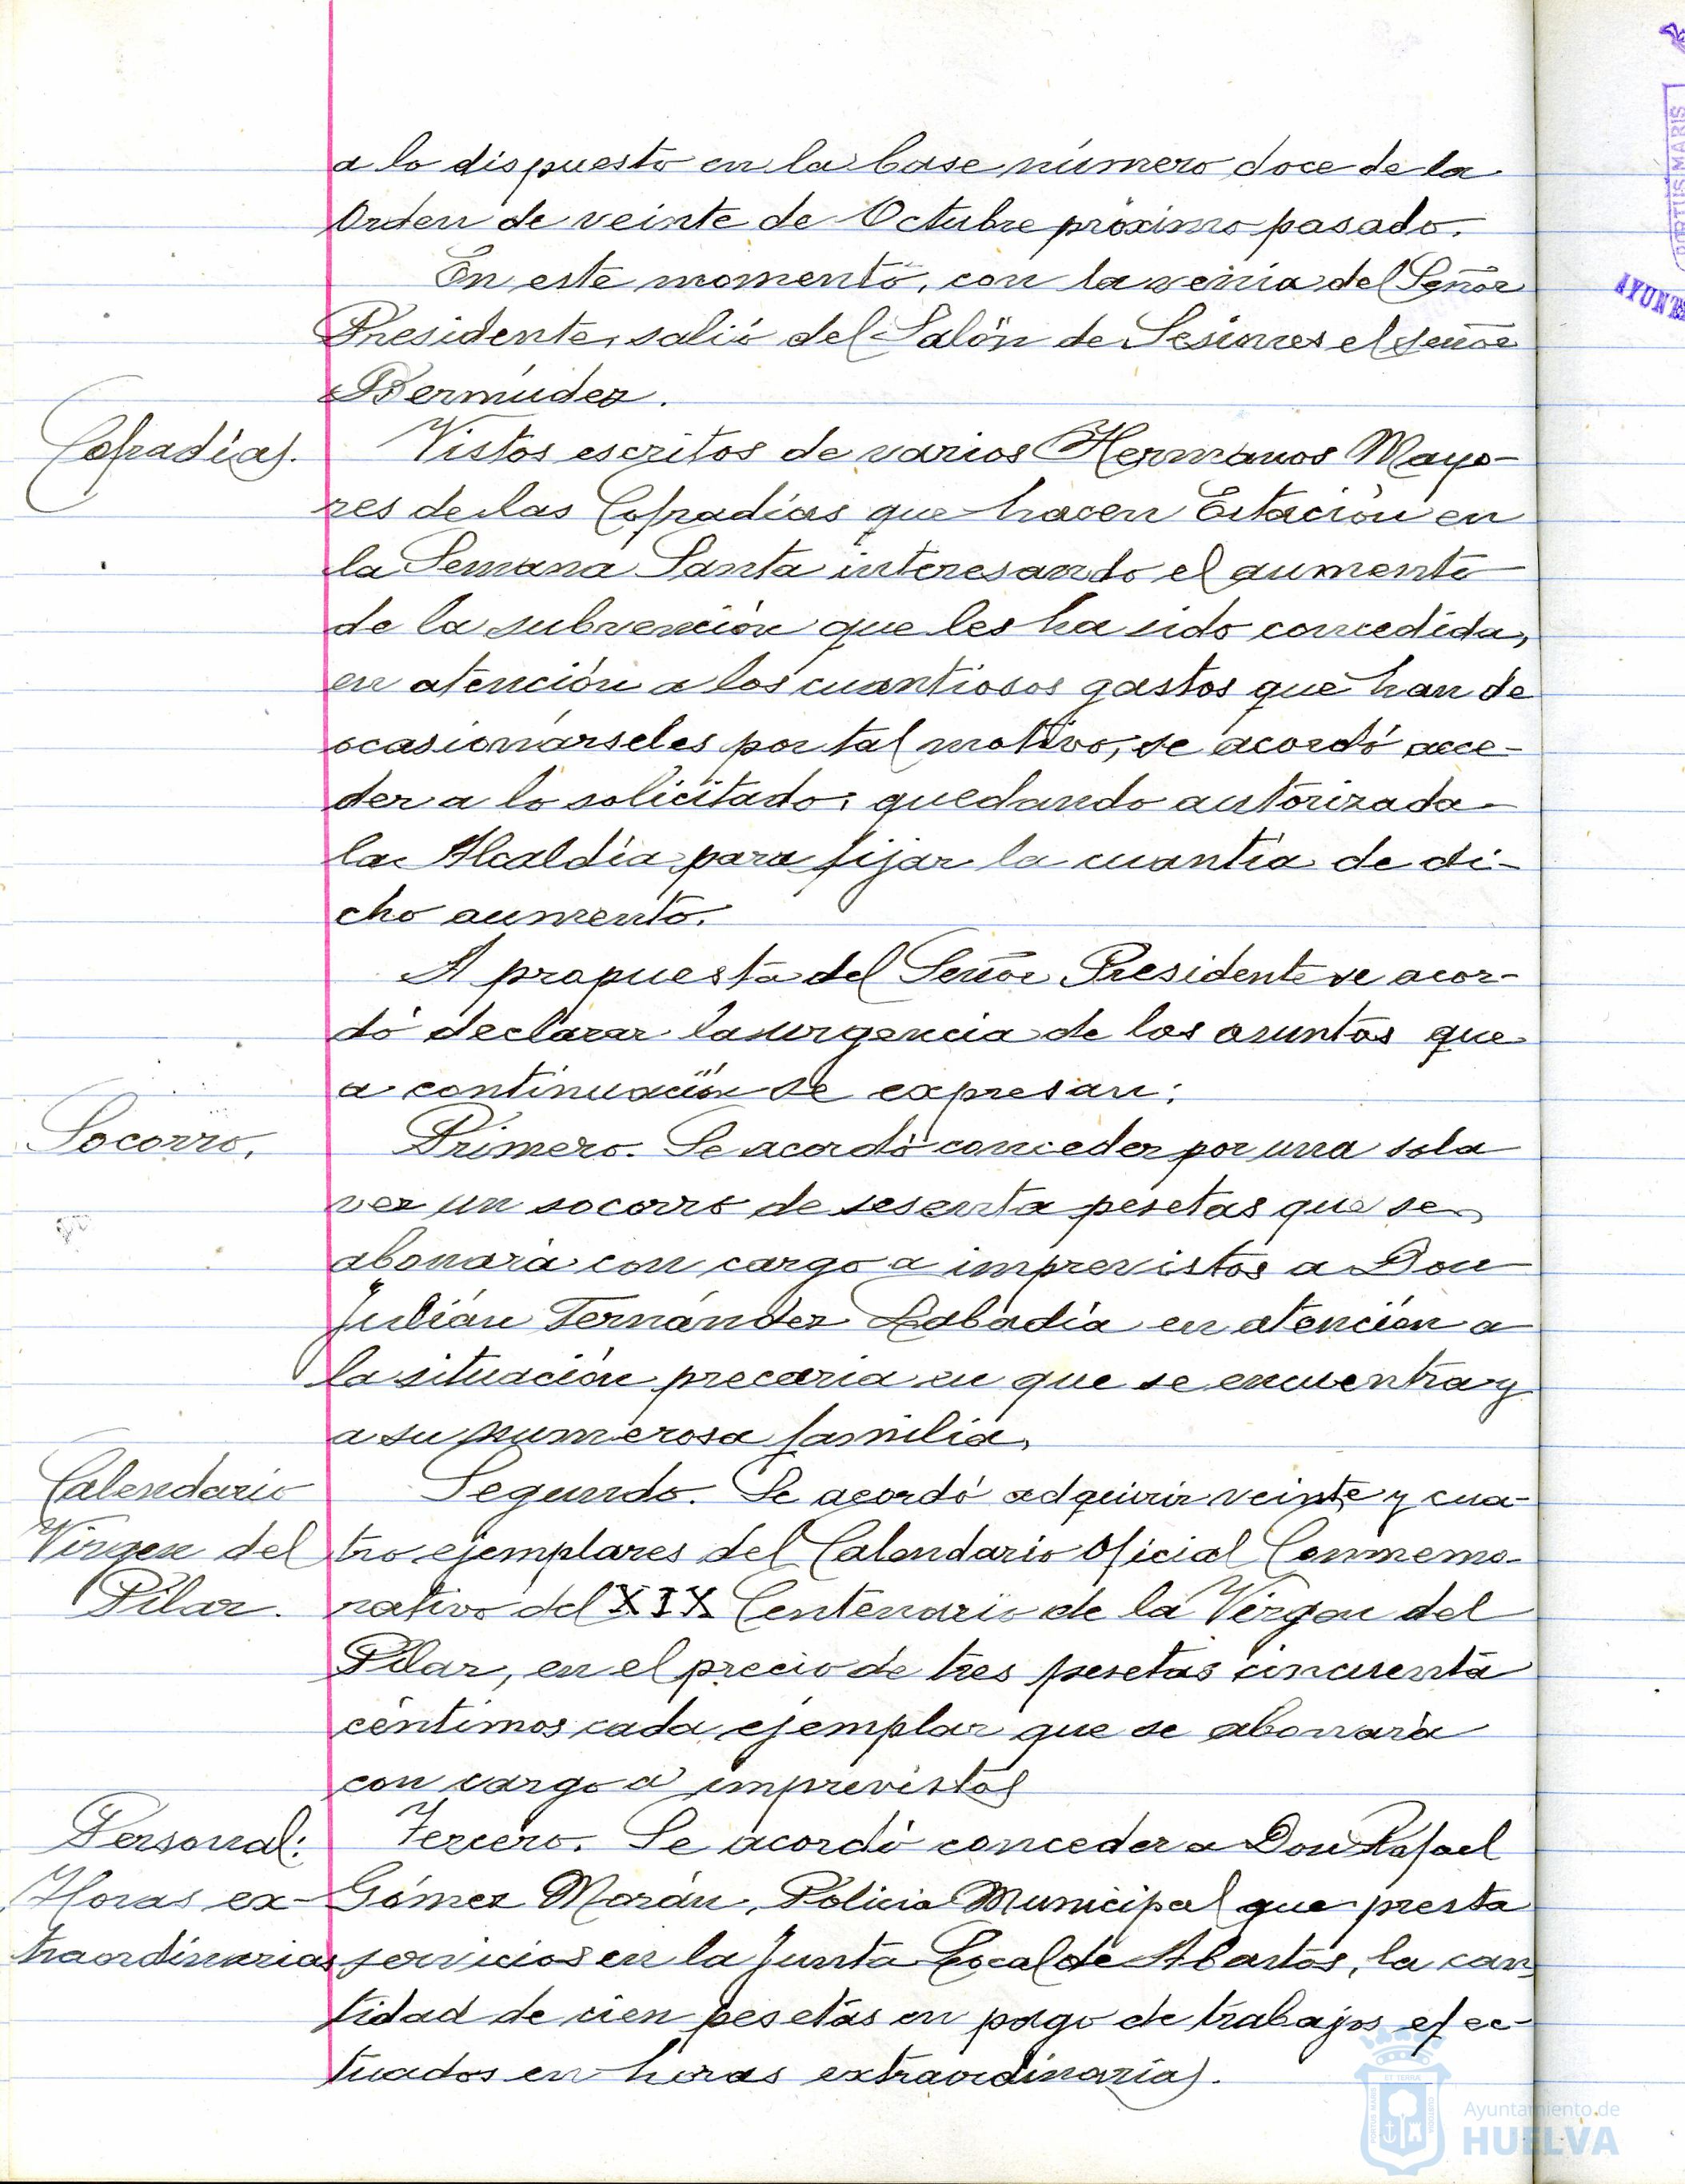 a lo dispuesto en la base número doce de la
Orden de veinte de Octubre próximo pasado.
En este momento, con la venia del Señor
Presidente, salió del Salón de Sesiones el señor
Bermúdez.
Cofradías.
Vistos escritos de varios Hermanos Mayo-
res de las Cofradías que hacen Estación en
la Semana Santa interesando el aumento
de la subvención que les ha sido concedida,
en atención a los cuantiosos gastos que han de
ocasionárseles por tal motivo, se acordó acce-
der a lo solicitado, quedando autorizada
la Alcaldía para fijar la cuantía de di-
cho aumento.
A propuesta del Señor Presidente se acor-
dó declarar la urgencia de los asuntos que
a continuación se expresan:
Socorro.
Primero. Se acordó conceder por una sola
vez un socorro de sesenta pesetas que se
abonará con cargo a imprevistos a Don
Julián Fernández Labadía en atención a
la situación precaria en que se encuentra y
a su numerosa familia.
Calendario
Virgen del
Pilar.
Segundo. Se acordó adquirir veinte y cua-
tro ejemplares del Calendario Oficial Conmemo-
rativo del XIX Centenario de la Virgen del
Pilar, en el precio de tres pesetas cincuenta
céntimos cada ejemplar que se abonará
con cargo a imprevistos
Personal:
Horas ex-
traordinarias
Tercero. Se acordó conceder a Don Rafael
Gómez Morán, Policía Municipal que presta
servicios en la Junta Local de Abastos, la can
tidad de cien pesetas en pago de trabajos efec-
tuados en horas extraordinarias.
PORTUS MARIS
AYUNT
Ayuntamiento de
HUELVA